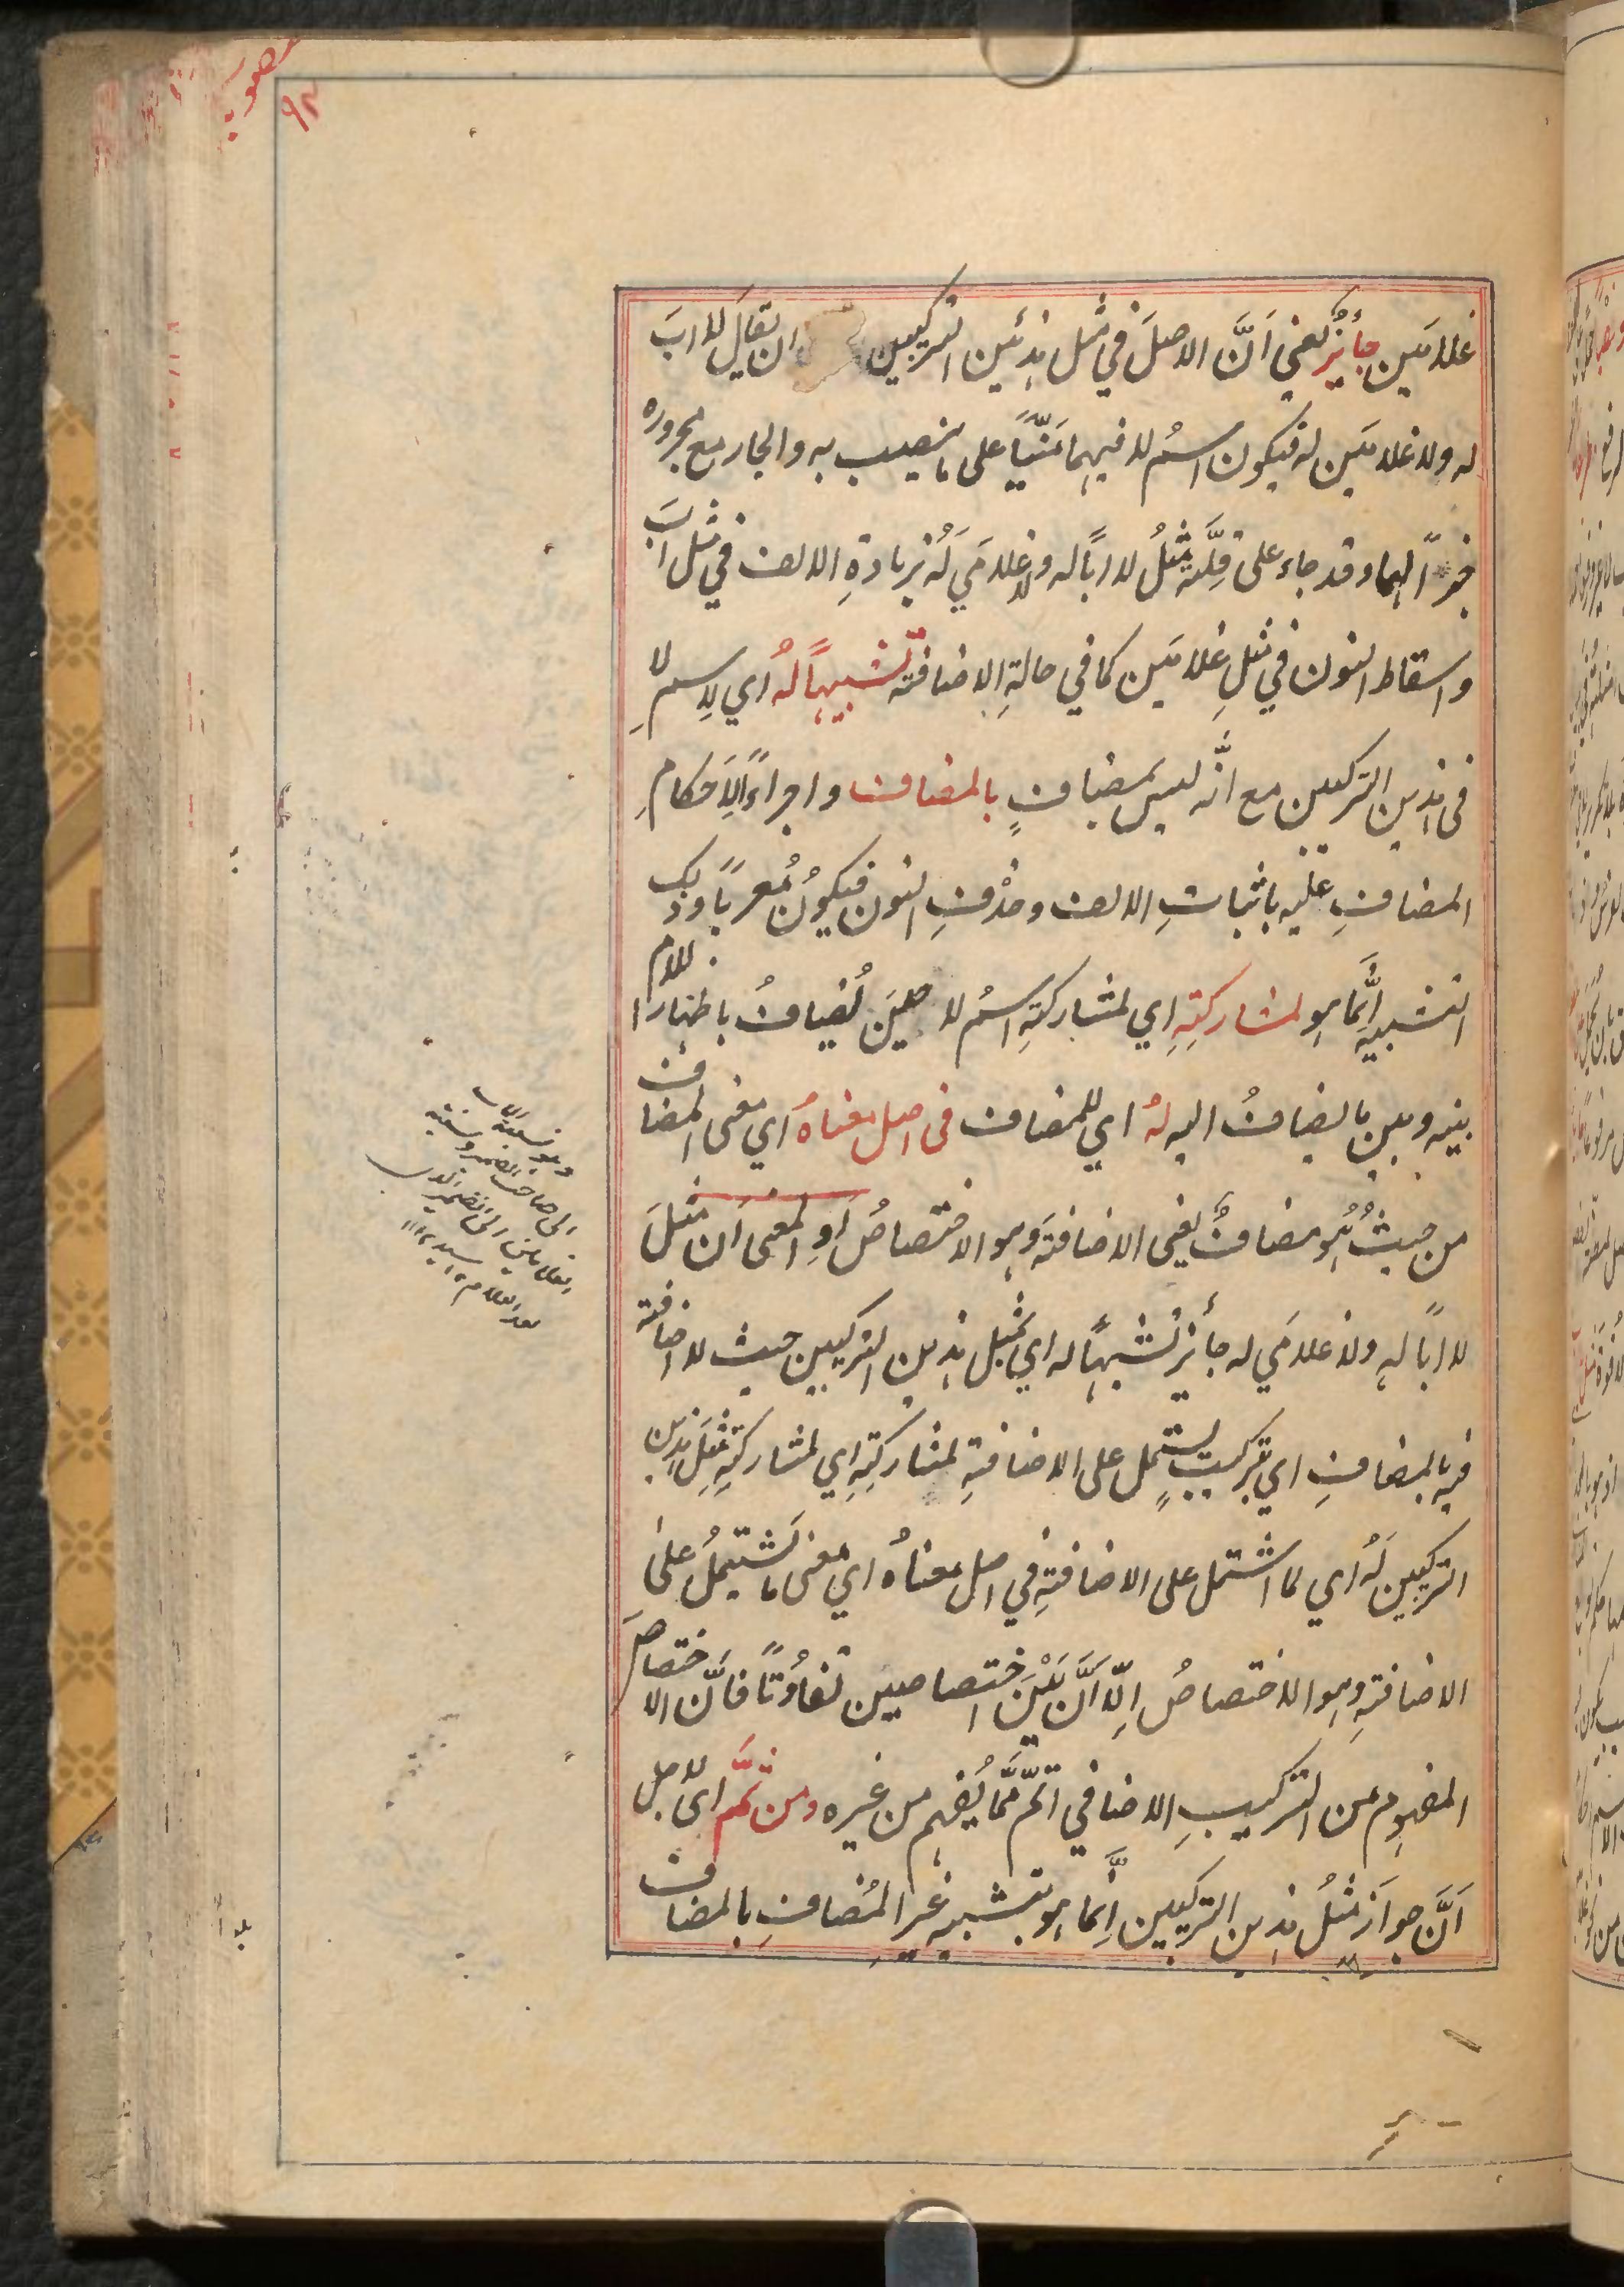 منصوبـ
٩٢
غلامَين جأئزٌ يعني اَنَّ الاصلَ في مثل هذَين التركيبين ان يقالَ لا ابَ
له ولا غلامَين له فيكون اسمُ لا فيهما مبنيًّا على ما ينصب به والجار مع مجروره
خبرًا لهما وقد جاء على قِلَّة مثلُ لا اباً له ولا غلامَي لَه بزيادةِ الالف في مثل ابَ
واسقاط النون في مثلِ غلامَين كما في حالةِ الاضافة تشبيهاً لهُ اي لِاسم لا
في هذين التركيبين مع انَّه ليس بمضافٍ بالمضاف واجراءً لِاَحكامِ
المضافِ عليه باثباتِ الالف وحذْفِ النون فيكونُ مُعربًا وذلك
التشبيه اِنَّما هو لمشاركتِهِ اي لمشاركتِه اسمُ لا حينَ يُضافُ باظهار اللام
بينه وبين ما يضافُ اليه لهُ اي للمضاف في اصل معناهُ اي معنى المضاف
من حيثُ هُو مضافٌ يعني الاضافةَ وهو الاختصاصُ اَوِ المعنى اَن مثلَ
لا اباً له ولا غلامَي له جأئز تشبيهاً له اي لمثل هذين التركيبين حيث لا اضافة
فيه بالمضافِ اي بتركيبٍ يشتمل على الاضافةِ لمشاركتِهِ اي لمشاركةِ مثلِ هذين
التركيبين لَهُ اي لما اشتمل على الاضافةِ في اصل معناهُ اي معنى ما يَشتَمِلُ على
الاضافةِ وهو الاختصاصُ اِلّا اَنَّ بَيْنَ اختصاصين تفاوُتًا فاَنَّ الاختصاصَ
المفهوم من التركيبِ الاضافي اتمّ ممَّا يُفهم من غيره ومن ثَمَّ اي لاجل
اَنَّ جوازَ مثلُ هذين التركيبين اِنَّما هو بتشبيه غير المُضافِ بالمضاف